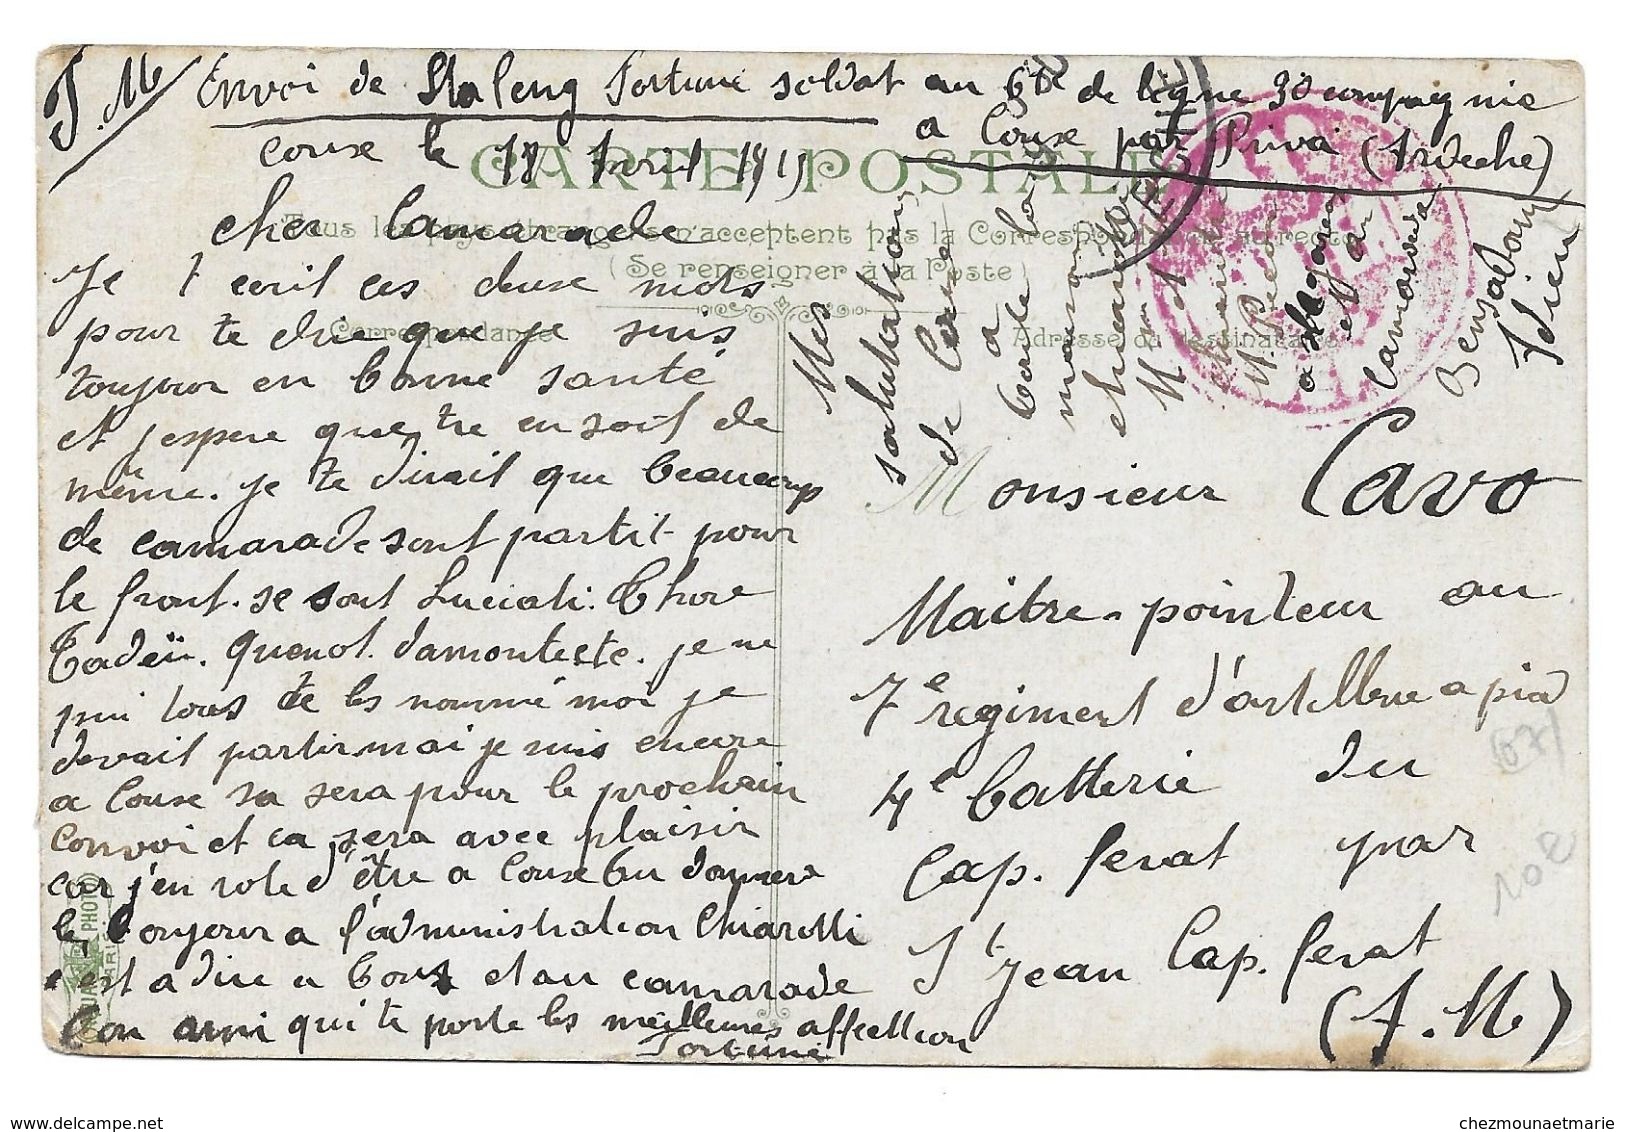 F.M. Envoi de Staleng Fortune soldat au 6te de ligne 30 compagnie
a Couse par Priva (Ardeche)
Couse le 18 Avril 1915
CARTE POSTALE
Tous les pays étrangers n'acceptent pas la Correspondance au recto
(Se renseigner à la Poste)
Correspondance
Adresse du destinataire
Cher Camarade
Je t ecril ces deuse mots
pour te dire que je suis
toujour en bonne santé
et j'espere que tre en soit de
même. je te dirait que beaucoup
de camarade sont partit pour
le front. se sont Luciati. Thore
Tadeï. Quenot. damonteste. je ne
pui tous te les nommé moi je
devait partir mai je suis encore
a Couse sa sera pour le prochain
convoi et ca sera avec plaisir
car j'en role d'être a Couse tu donnera
le bonjour a l'administration Chiarelli
c'est a dire a tous et au camarade
ton ami qui te porte les meilleures affecttion
Fortuné
Mes
salutations
de Couse
a
toute la
maison
M. Pecou
a Magarios
et au
Camoréra
Bensadoun
Adieu
Monsieur Cavo
Maitre-pointeur au
7e regiment d'artillerie a pied
4e batterie du
Cap. ferat par
St Jean Cap. ferat
(A.M)
67
102
PHOTO
PARIS
https://www.delcampe.net
chezmounaetmarie